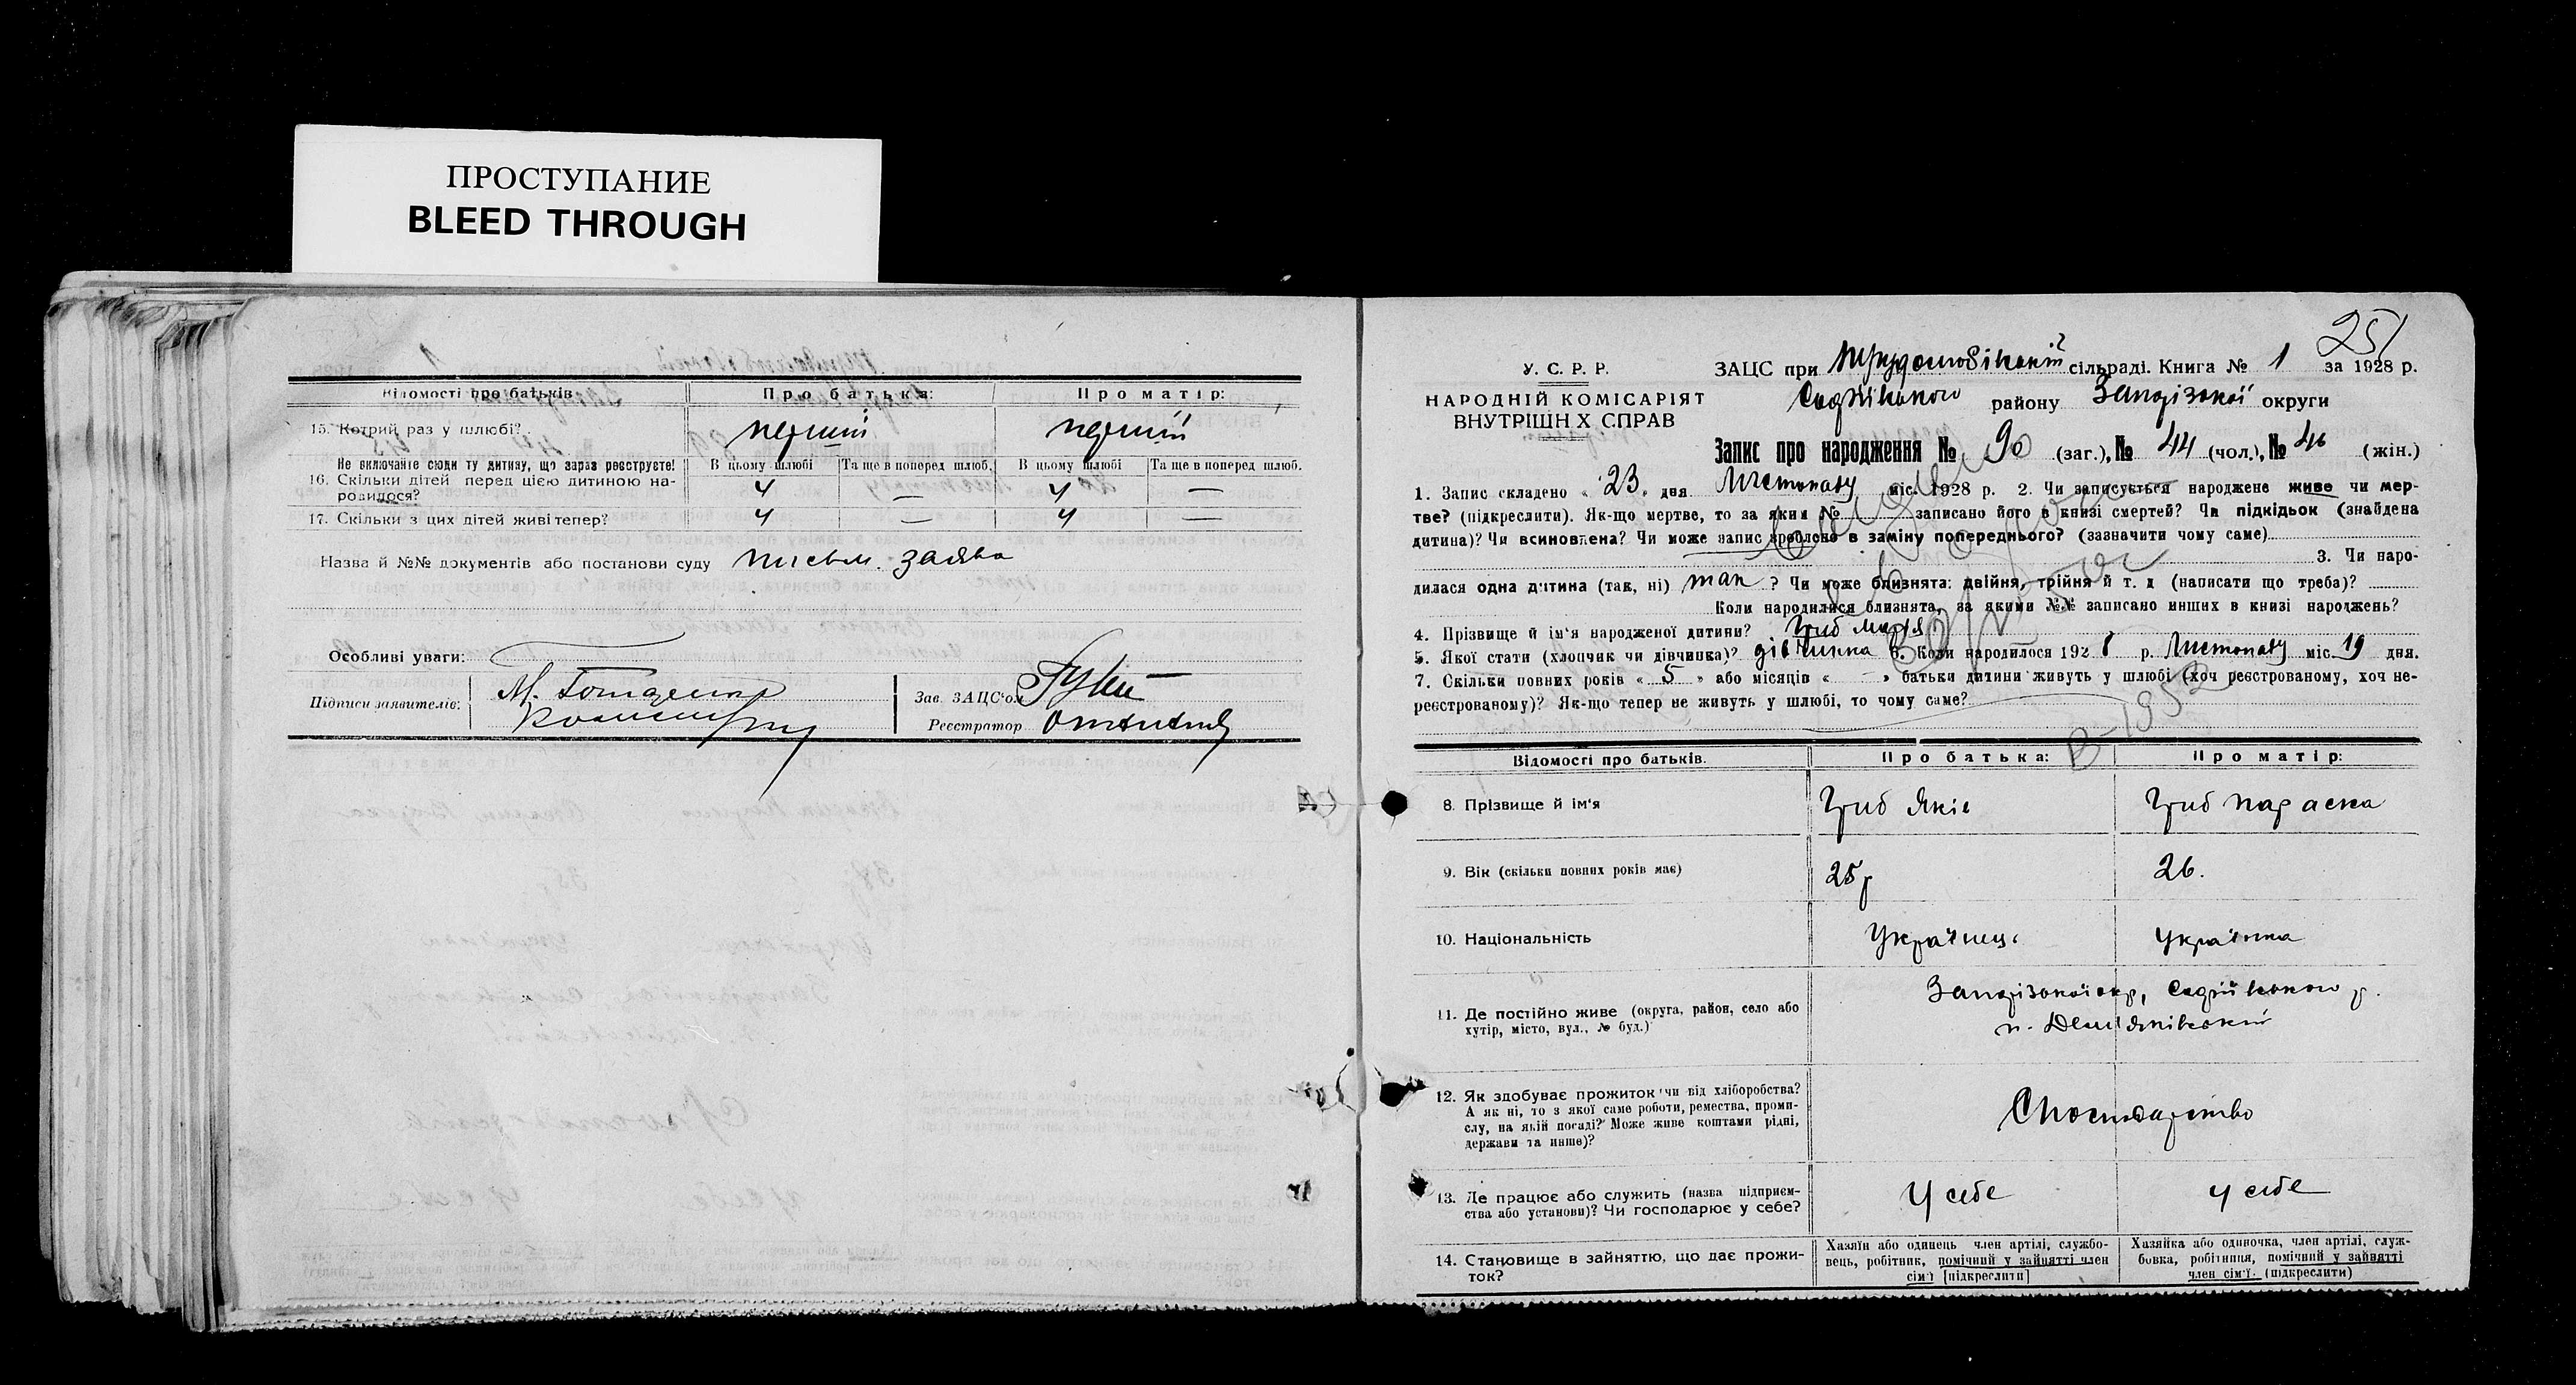 ПРОСТУПАНИЕ
BLEED THROUGH
Відомості про батьків
Про батька:
Про матір:
15. Котрий раз у шлюбі?
перший
перший
Не включайте сюди ту дитину, що зараз реєструєте!
В цьому шлюбі
Та ще в поперед шлюб.
В цьому шлюбі
Та ще в поперед шлюб.
16. Скільки дітей перед цією дитиною на-
родилося?
4
—
4
—
17. Скільки з цих дітей живі тепер?
4
—
4
—
Назва й №№ документів або постанови суду письм. заява
Особливі уваги:
Підписи заявителів:
Зав. ЗАЦС'ом
Реєстратор
251
У. С. Р. Р.
НАРОДНІЙ КОМІСАРІЯТ
ВНУТРІШН Х СПРАВ
ЗАЦС при сільраді. Книга № 1 за 1928 р.
району Запорізької округи
Запис про народження № 90 (заг.), № 44 (чол.), № 46 (жін.)
1. Запис складено « 23 » дня Листопаду міс. 1928 р. 2. Чи записується народжене живе чи мер-
тве? (підкреслити). Як-що мертве, то за яким № записано його в книзі смертей? Чи підкідьок (знайдена
дитина)? Чи всиновлена? Чи може запис зроблено в заміну попереднього? (зазначити чому саме)
3. Чи наро-
дилася одна дитина (так, ні) так ? Чи може близнята: двійня, трійня й т. д (написати що треба)?
Коли народилися близнята, за якими №№ записано инших в книзі народжень?
4. Прізвище й ім'я народженої дитини? Гриб Марія
5. Якої стати (хлопчик чи дівчинка)? дівчинка 6. Коли народилося 1928 р. Листопаду міс. 19 дня.
7. Скільки повних років « 5 » або місяців « — » батьки дитини живуть у шлюбі (хоч реєстрованому, хоч не-
реєстрованому)? Як-що тепер не живуть у шлюбі, то чому саме?
В-1958
Відомості про батьків.
Про батька:
Про матір:
8. Прізвище й ім'я
Гриб Яків
Гриб Параска
9. Вік (скільки повних років має)
25 р
26.
10. Національність
Українець
Українка
11. Де постійно живе (округа, район, село або
хутір, місто, вул., № буд.)
Запорізької окр,
12. Як здобуває прожиток чи від хліборобства?
А як ні, то з якої саме роботи, ремества, проми-
слу, на якій посаді? Може живе коштами рідні,
держави та инше)?
13. Де працює або служить (назва підприєм-
ства або установи)? Чи господарює у себе?
У себе
у себе
14. Становище в зайняттю, що дає прожи-
ток?
Хазяїн або одинець член артілі, службо-
вець, робітник, помічний у зайнятті член
сім'ї [підкреслити]
Хазяйка або одиночка, член артілі, служ-
бовка, робітниця, помічний у зайнятті
член сім'ї. (підкреслити)